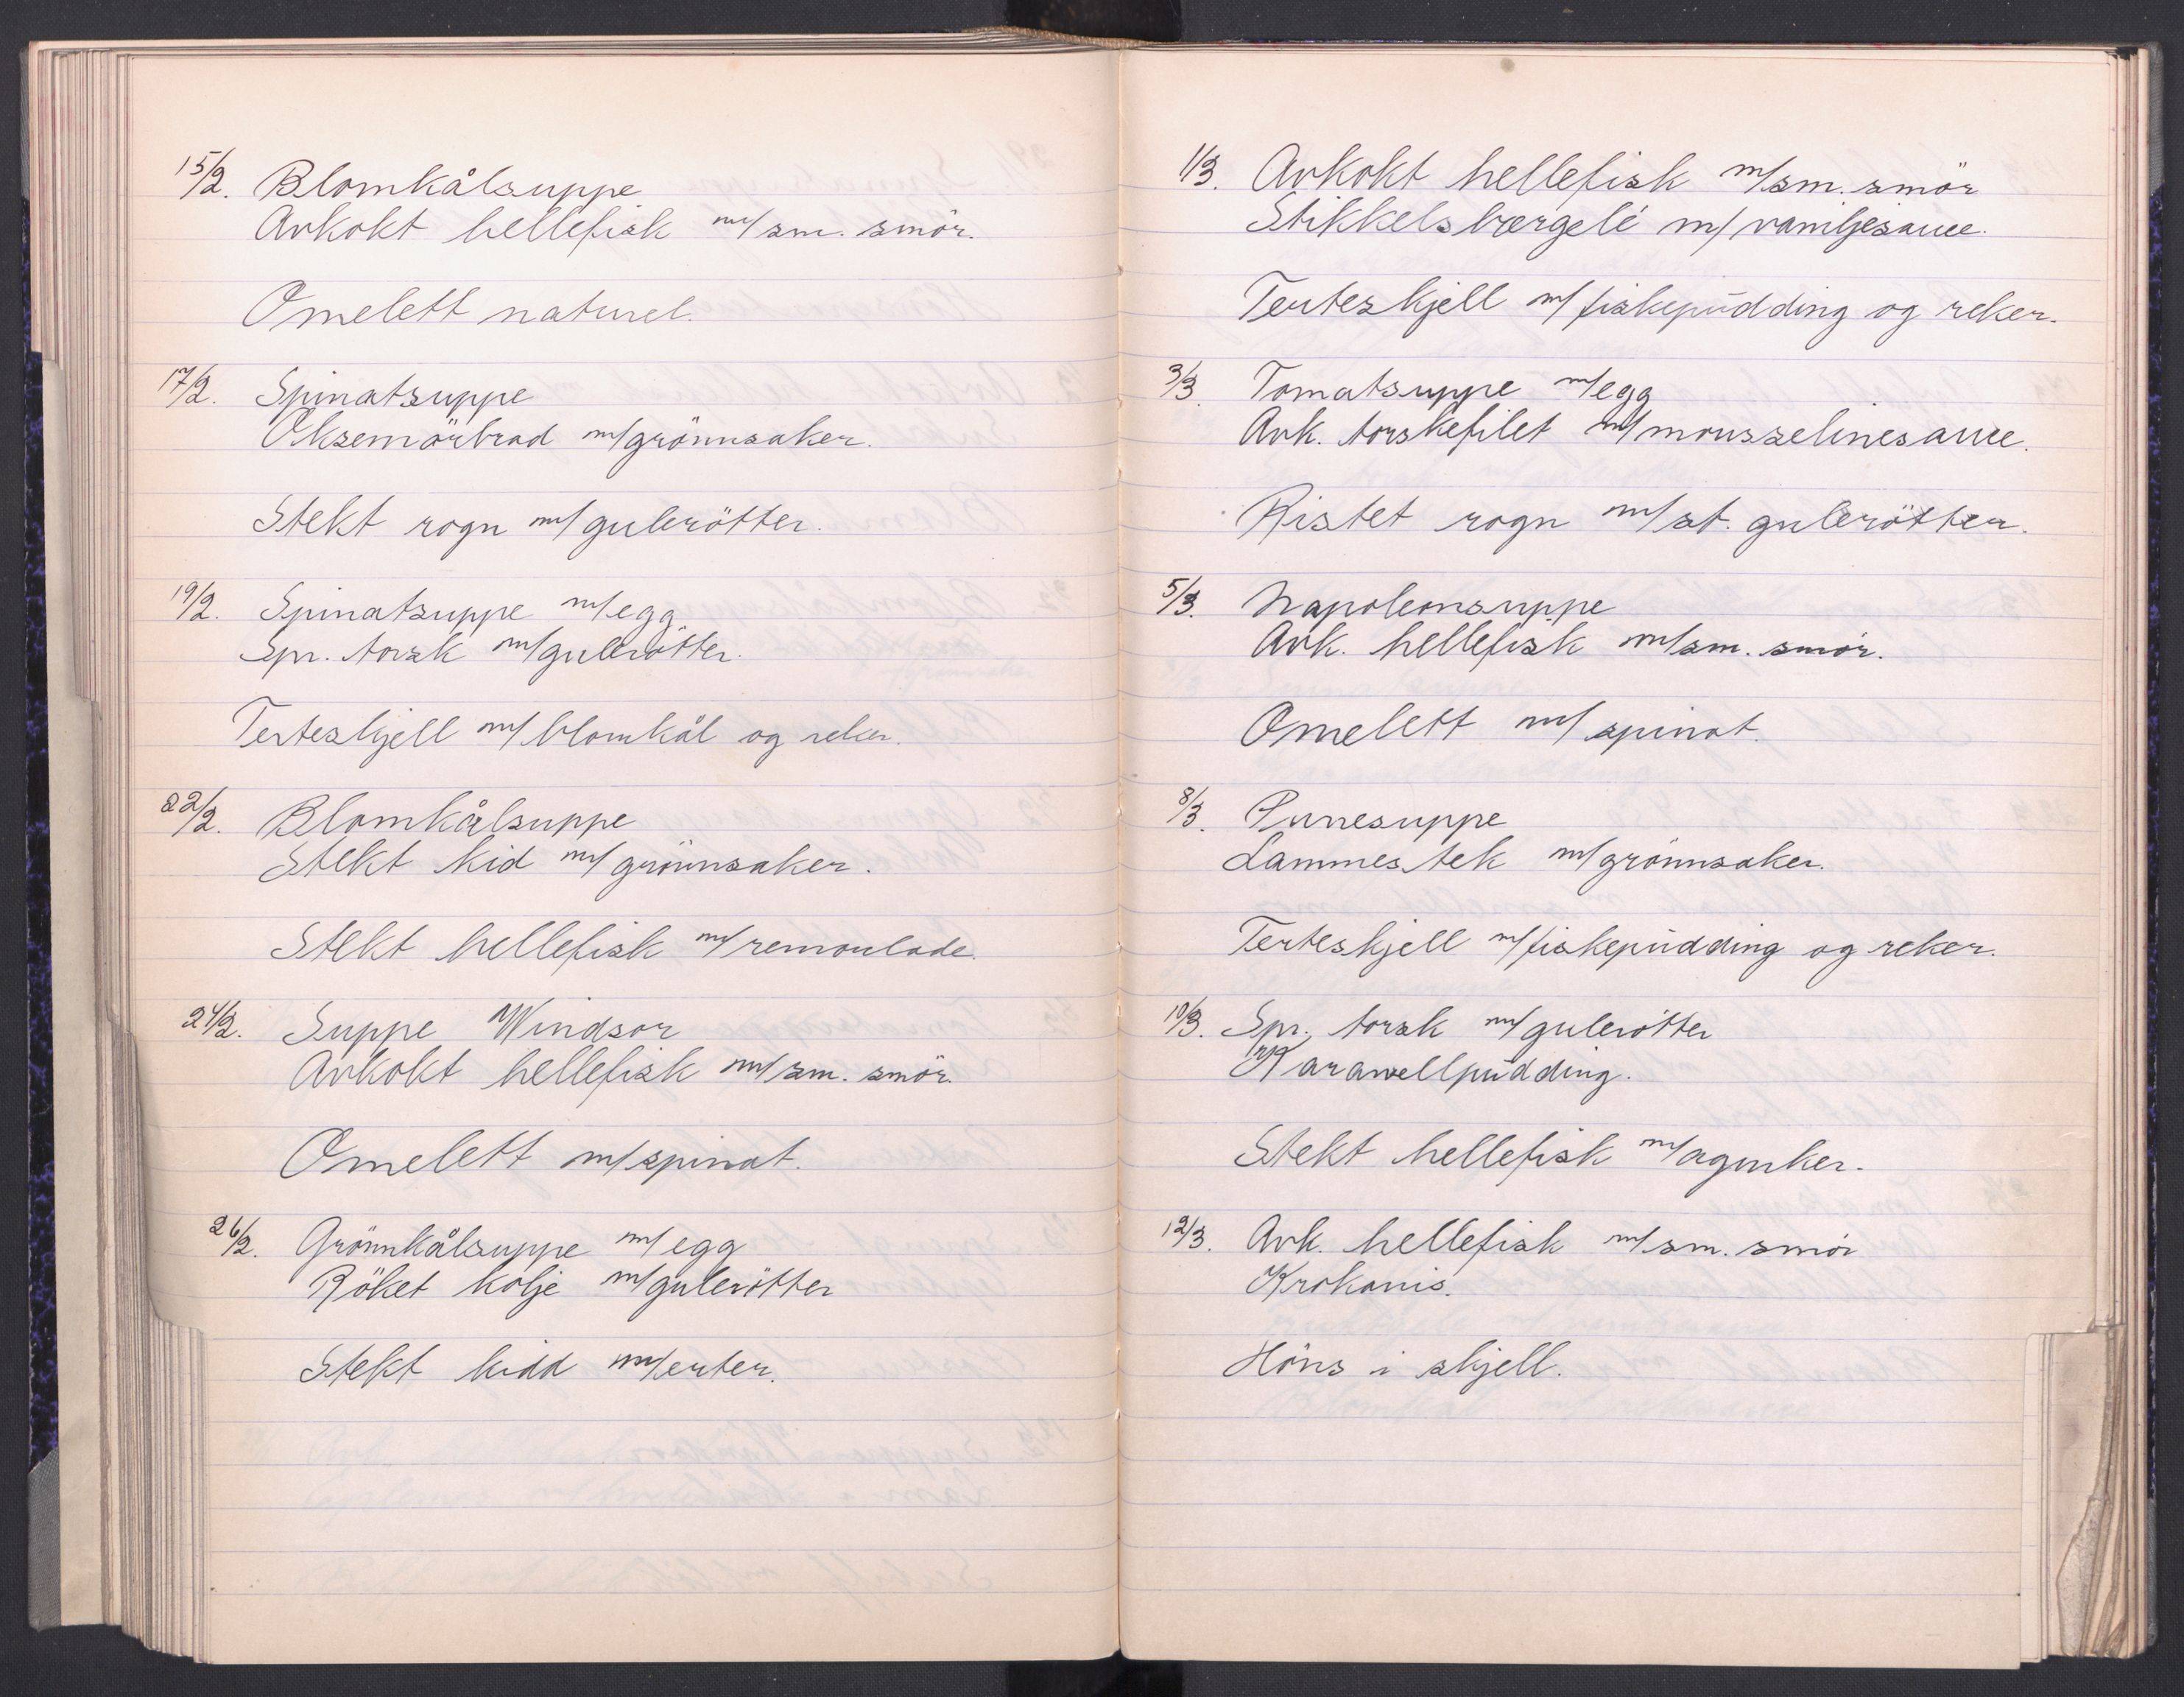 15/2. Blomkålsuppe
Avkokt hellefisk m/sm. smör.
Omelett naturel.
17/2. Spinatsuppe
Oksemörbrad m/grönnsaker.
Stekt rogn m/gulerötter.
19/2. Spinatsuppe m/egg
Spr. torsk m/gulerötter.
Terteskjell m/blomkål og reker.
22/2. Blomkålsuppe
Stekt kid m/grönnsaker.
Stekt hellefisk m/remoulade.
24/2. Suppe Windsor
Avkokt hellefisk m/sm. smör.
Omelett m/spinat.
26/2. Grönnkålsuppe m/egg
Röket kolje m/gulerötter
Stekt kidd m/erter.
1/3. Avkokt hellefisk m/sm. smör
Stikkelsbærgelé m/vaniljesauce.
Terteskjell m/fiskepudding og reker.
3/3. Tomatsuppe m/egg
Avk. torskefilet m/mousselinesauce.
Ristet rogn m/st. gulerötter.
5/3. Napoleonsuppe
Avk. hellefisk m/sm. smör.
Omelett m/spinat.
8/3. Purresuppe
Lammestek m/grönnsaker.
Terteskjell m/fiskepudding og reker.
10/3. Spr. torsk m/gulerötter
Karamellpudding.
Stekt hellefisk m/agurker.
12/3. Avk. hellefisk m/sm. smör
Krokanis.
Höns i skjell.